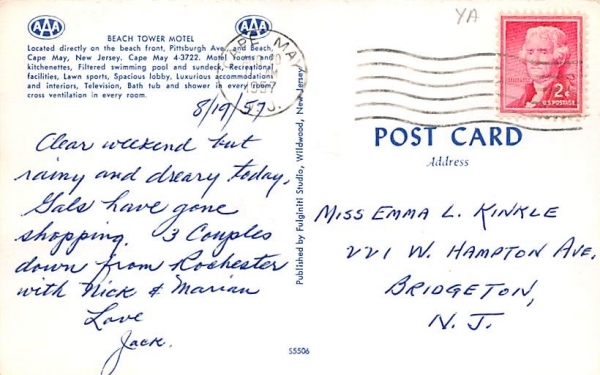 YA
AAA AAA
BEACH TOWER MOTEL
Located directly on the beach front, Pittsburgh Ave. and Beach,
Cape May, New Jersey. Cape May 4-3722. Motel rooms and
kitchenettes, Filtered swimming pool and sundeck, Recreational
facilities, Lawn sports, Spacious lobby, Luxurious accommodations
and interiors, Television, Bath tub and shower in every room,
cross ventilation in every room.
CAPE MAY
1957
N.J.
2¢
U.S. POSTAGE
8/19/57
Clear weekend but
rainy and dreary today,
Gals have gone
shopping. 3 Couples
down from Rochester
with Nick & Marian
Love
Jack.
Published by Fulginiti Studio, Wildwood, New Jersey
POST CARD
Address
MISS EMMA L. KINKLE
221 W. HAMPTON AVE,
BRIDGETON,
N. J.
S5506